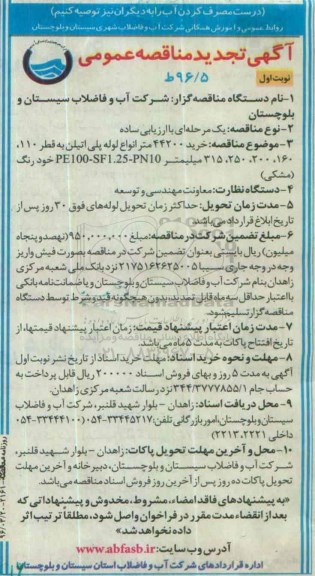 (درست مصرف کردن آب را به دیگران نیز توصیه کنیم)
روابط عمومی و آموزش همگانی شرکت آب و فاضلاب شهری سیستان و بلوچستان
آگهی تجدید مناقصه عمومی
۹۶/۵ط
نوبت اول
۱-نام دستگاه مناقصه گزار: شرکت آب و فاضلاب سیستان و
بلوچستان
۲-نوع مناقصه: یک مرحله ای با ارزیابی ساده
۳-موضوع مناقصه: خرید ۴۴۲۰۰ متر انواع لوله پلی اتیلن به قطر ۱۱۰،
۱۶۰، ۲۰۰، ۲۵۰، ۳۱۵ میلیمتر PE100-SF1.25-PN10 خود رنگ
(مشکی)
۴-دستگاه نظارت: معاونت مهندسی و توسعه
۵-مدت زمان تحویل: حداکثر زمان تحویل لوله های فوق ۳۰ روز پس از
تاریخ ابلاغ قرارداد می باشد.
۶-مبلغ تضمین شرکت در مناقصه: مبلغ ۹۵۰,۰۰۰,۰۰۰ (نهصد و پنجاه
میلیون) ریال بایستی بعنوان تضمین شرکت در مناقصه بصورت فیش واریز
وجه در وجه جاری سیبا ۲۱۷۵۱۶۲۶۲۵۰۰۵ نزد بانک ملی شعبه مرکزی
زاهدان بنام شرکت آب و فاضلاب سیستان و بلوچستان و یا ضمانت نامه بانکی
با اعتبار حداقل سه ماه قابل تمدید، بدون هیچگونه قید و شرط توسط دستگاه
مناقصه گزار تسلیم شود.
۷-مدت زمان اعتبار پیشنهاد قیمت: زمان اعتبار پیشنهاد قیمتها، از
تاریخ افتتاح پاکات به مدت ۳ ماه می باشد.
۸-مهلت و نحوه خرید اسناد: مهلت خرید اسناد از تاریخ نشر نوبت اول
آگهی به مدت ۵ روز و بهای فروش اسناد ۲۰۰۰۰۰ ریال قابل پرداخت به
حساب جام ۳۴۴/۳۷۷۷۸۵۵/۱ نزد رسالت شعبه مرکزی زاهدان.
۹-محل دریافت اسناد: زاهدان - بلوار شهید قلنبر، شرکت آب و فاضلاب
سیستان و بلوچستان، امور بازرگانی تلفن: ۳۳۴۴۵۲۱۷-۰۵۴ (۳۳۴۴۴۱۰۰-۰۵۴
داخلی ۲۲۲۱، ۲۲۱۳)
۱۰-محل و آخرین مهلت تحویل پاکات: زاهدان - بلوار شهید قلنبر،
شرکت آب و فاضلاب سیستان و بلوچستان، دبیرخانه و آخرین مهلت
تحویل پاکات ده روز پس از آخرین روز فروش اسناد مناقصه می باشد.
«به پیشنهادهای فاقد امضاء، مشروط، مخدوش و پیشنهاداتی که
بعد از انقضاء مدت مقرر در فراخوان واصل شود، مطلقاً ترتیب اثر
داده نخواهد شد»
آدرس وب سایت: www.abfasb.ir
اداره قراردادهای شرکت آب و فاضلاب استان سیستان و بلوچستان